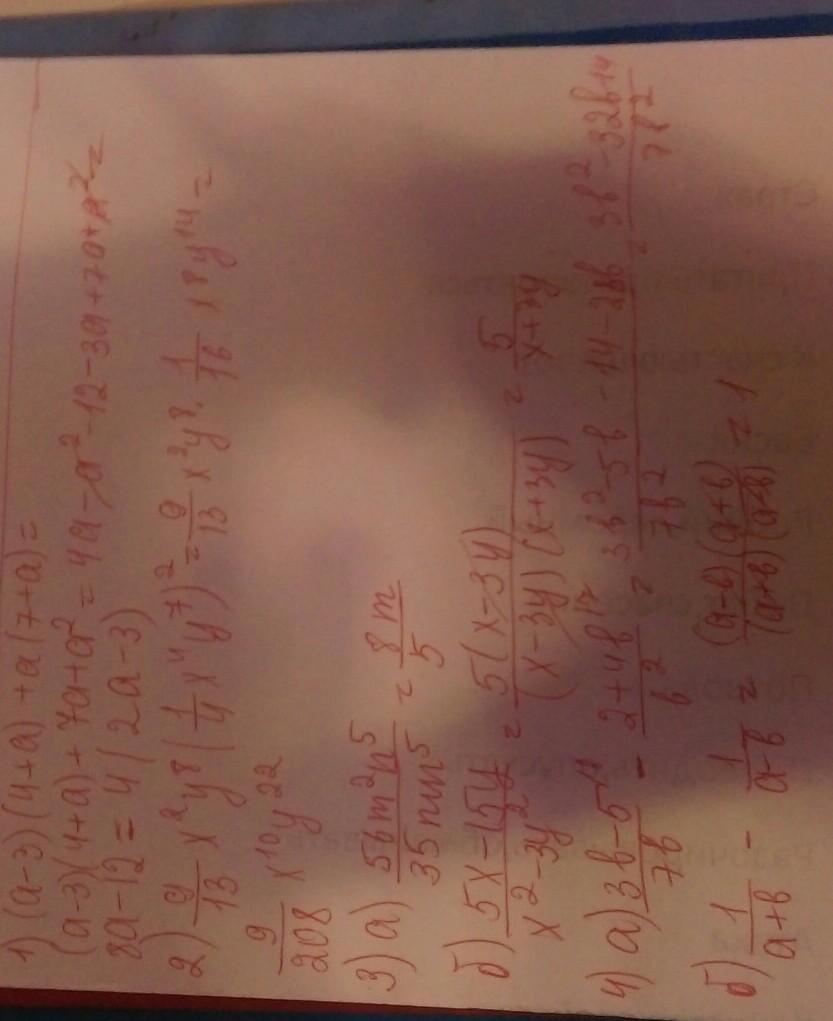 1) (a-3)(4+a)+a(7+a)=
(a-3)(4+a)+7a+a² = 4a-a²-12-3a+7a+a²=
8a-12 = 4(2a-3)
2) 9/13 x²y⁸(1/4 x⁴y⁷)² = 9/13 x²y⁸ · 1/16 x⁸y¹⁴ =
9/208 x¹⁰y²²
3) а) 56m²n⁵/35nm⁵ = 8m/5
б) 5x-15y/x²-3y² = 5(x-3y)/(x-3y)(x+3y) = 5/x+3y
4) а) 3b-5/7b - 2+4b/b² = 3b²-5b-14-28b/7b² = 3b²-32b+14/7b²
б) 1/a+b - 1/a-b = (a-b)(a+b)/(a+b)(a-b) = 1